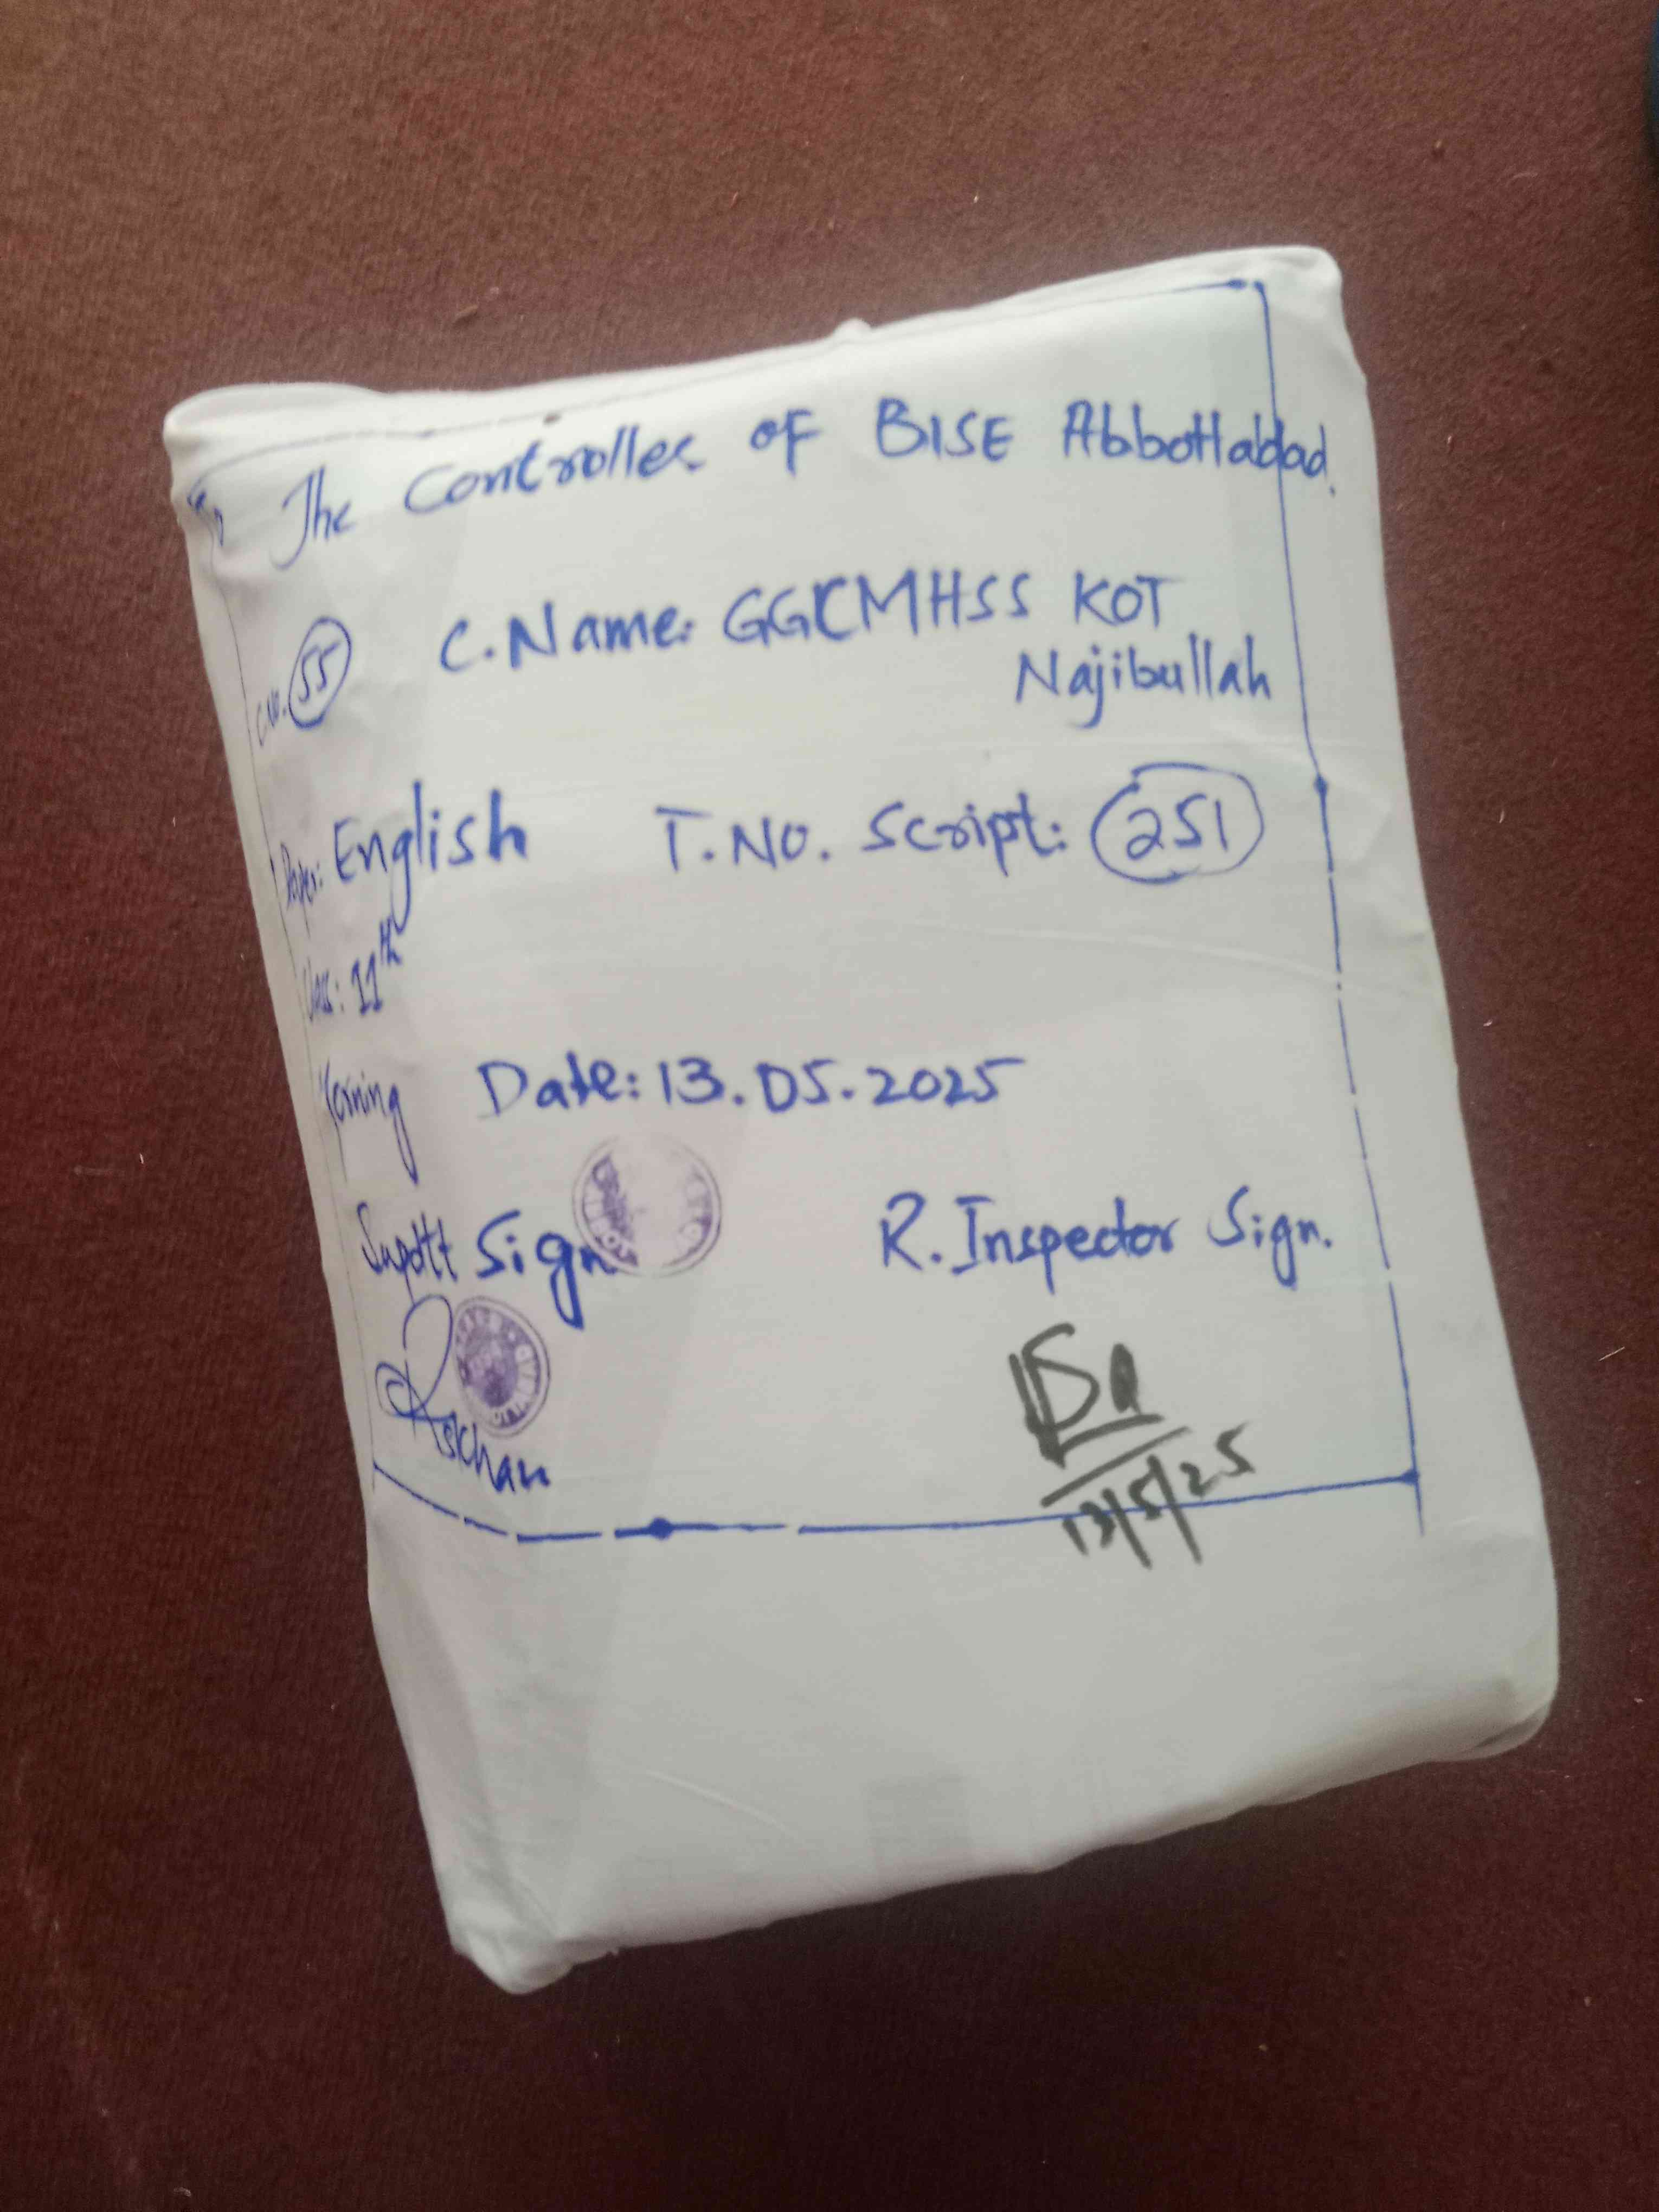 To The Controller of BISE Abbottabad.
C.No. 55 C.Name: GGCMHSS KOT
Najibullah
Paper: English T.No. Script: 251
Class: 11th
Morning Date: 13.05.2025
Supdtt Sign R. Inspector Sign.
13/5/25